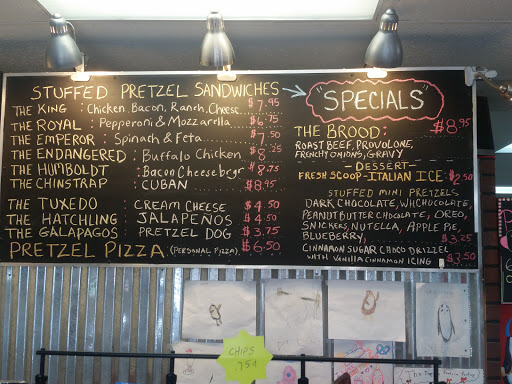 STUFFED PRETZEL SANDWICHES
THE KING : Chicken, Bacon, Ranch, Cheese $7.95
THE ROYAL : Pepperoni & Mozzarella $6.75
THE EMPEROR : Spinach & Feta $7.50
THE ENDANGERED : Buffalo Chicken $8.25
THE HUMBOLDT : Bacon Cheesebgr $8.75
THE CHINSTRAP : CUBAN $8.95
THE TUXEDO : CREAM CHEESE $4.50
THE HATCHLING : JALAPEÑOS $4.50
THE GALAPAGOS : PRETZEL DOG $3.75
PRETZEL PIZZA (PERSONAL PIZZA) $6.50
"SPECIALS"
THE BROOD: $8.95
ROAST BEEF, PROVOLONE,
FRENCH ONIONS, GRAVY
- DESSERT -
FRESH SCOOP-ITALIAN ICE $2.50
STUFFED MINI PRETZELS
DARK CHOCOLATE, WH.CHOCOLATE,
PEANUT BUTTER CHOCOLATE, OREO,
SNICKERS, NUTELLA, APPLE PIE,
BLUEBERRY, $3.25
CINNAMON SUGAR CHOCO DRIZZEL
WITH VANILLA CINNAMON ICING $3.50
CHIPS
.75¢